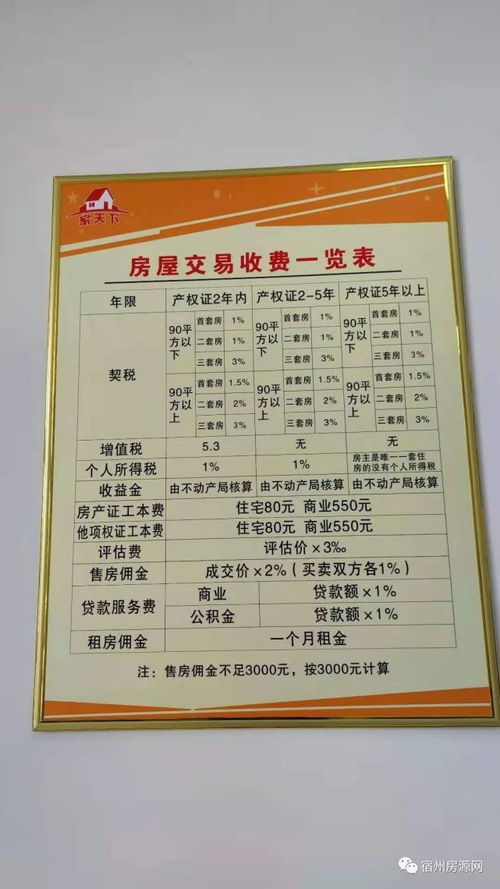 家天下
房屋交易收费一览表
年限 产权证2年内 产权证2-5年 产权证5年以上
契税
90平方以下 首套房 1% 90平方以下 首套房 1% 90平方以下 首套房 1%
二套房 1% 二套房 1% 二套房 1%
三套房 3% 三套房 3% 三套房 3%
90平方以上 首套房 1.5% 90平方以上 首套房 1.5% 90平方以上 首套房 1.5%
二套房 2% 二套房 2% 二套房 2%
三套房 3% 三套房 3% 三套房 3%
增值税 5.3 无 无
个人所得税 1% 1% 房主是唯一一套住房的没有个人所得税
收益金 由不动产局核算 由不动产局核算 由不动产局核算
房产证工本费 住宅80元 商业550元
他项权证工本费 住宅80元 商业550元
评估费 评估价×3‰
售房佣金 成交价×2%(买卖双方各1%)
贷款服务费 商业 贷款额×1%
公积金 贷款额×1%
租房佣金 一个月租金
注：售房佣金不足3000元，按3000元计算
宿州房源网